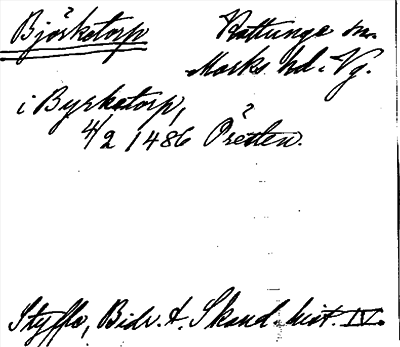 Björketorp
Kattunga sn.
Marks hd. Vg.
i Byrketorp,
4/2 1486 Öretten.
Styffe, Bidr. t. Skand. hist. IV.